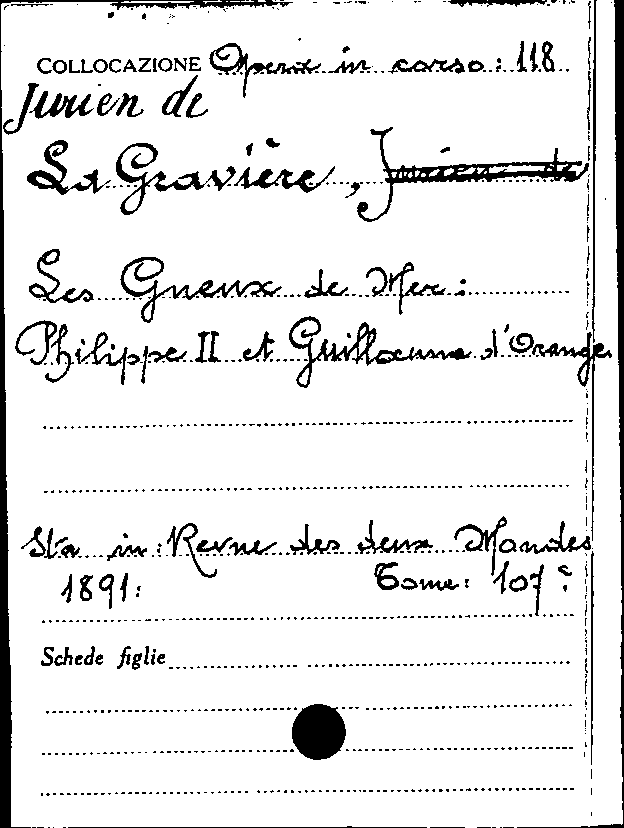 COLLOCAZIONE Opera in corso: 118
Jurien de
La Gravière, Jurien de
Les Gueux de Mer:
Philippe II et Guillaume d'Orange.
Sta in: Revue des deux Mondes
1891: Tome: 107º:
Schede figlie